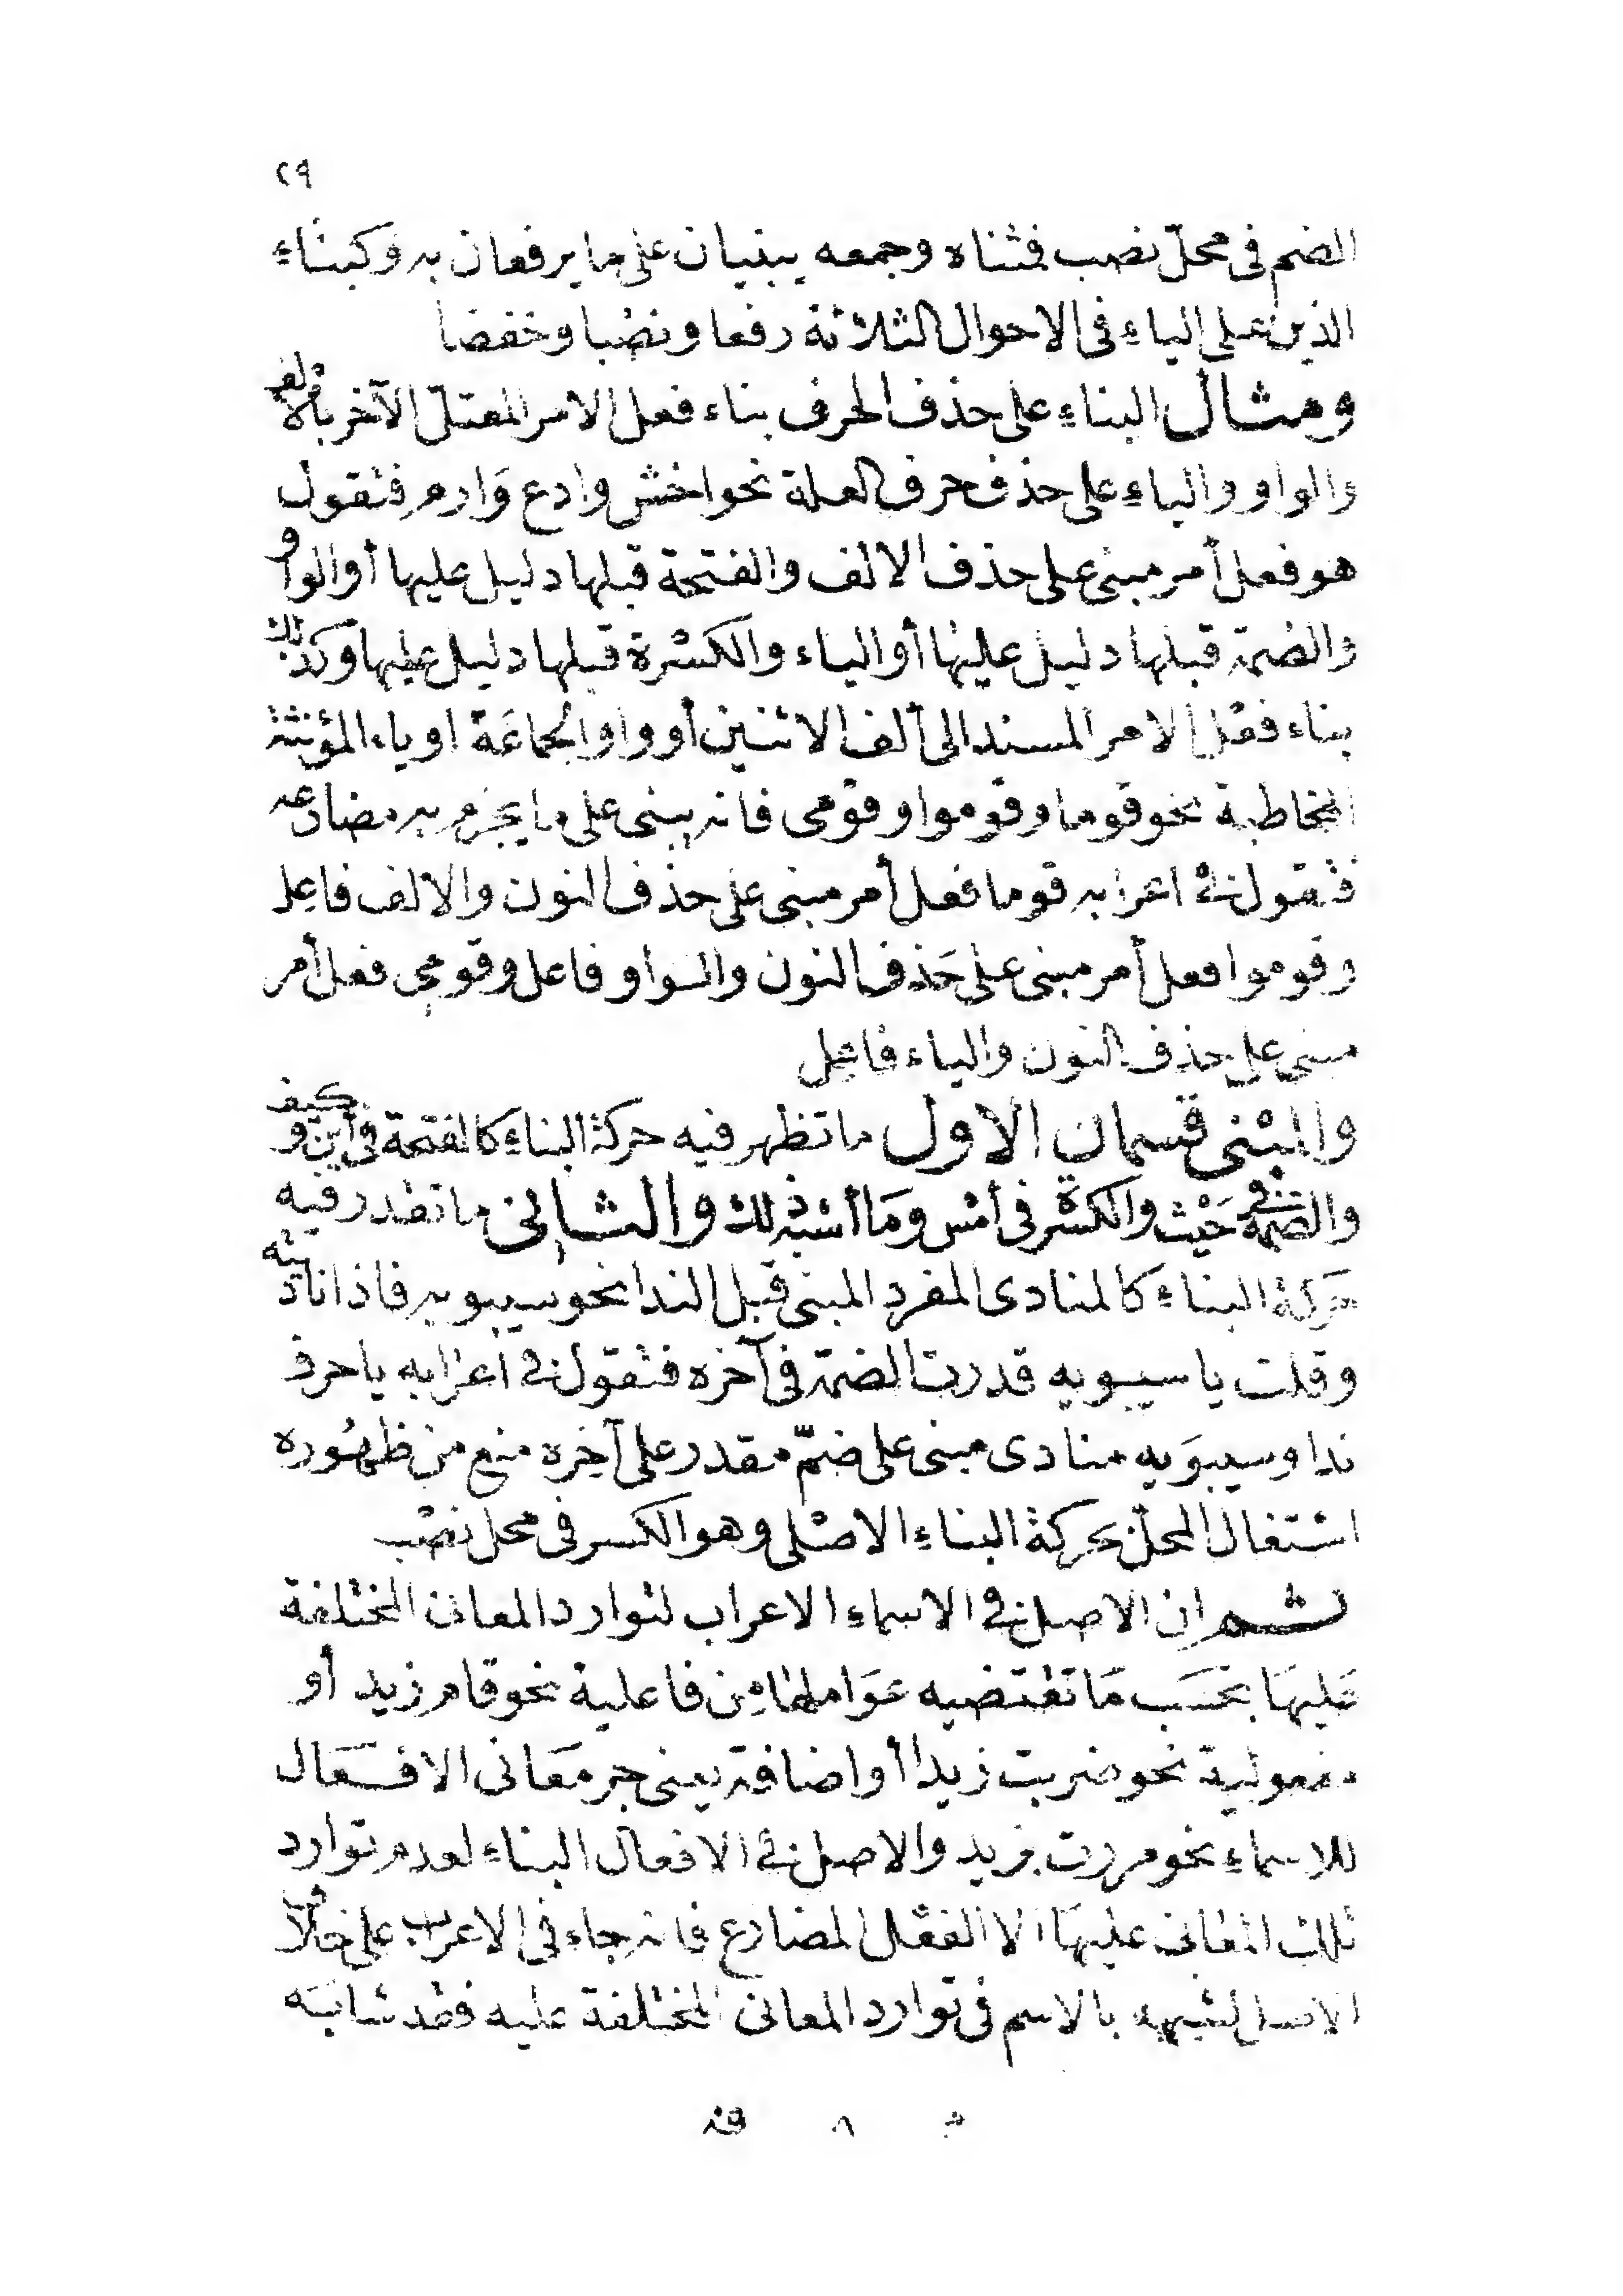 ٢٩
الضم فى محلّ نصب فمثناه وجمعه يبنيان على ما يرفعان به وكبناء
الذين على الياء فى الاحوال الثلاثة رفعا ونصبا وخفضا
ومثال البناء على حذف الحرف بناء فعل الامر المعتلّ الآخر بالالف
والواو والياء على حذف حرف العلة نحو اخش وادع وَارم فتقول
هو فعل أمر مبنى على حذف الالف والفتحة قبلها دليل عليها أو الواو
والضمة قبلها دليل عليها أو الياء والكسْرة قبلها دليل عليها وكذلك
بناء فعْل الامر المسند الى ألف الاثنين أو واو الجماعَة او ياء المؤنثة
المخاطبة نحو قوما وقوموا وقومى فانه يبنى على ما يجزم به مضارعه
فتقول فى اعرابه قوما فعل أمر مبنى على حذف النون والالف فاعل
وقوموا فعل أمر مبنى على حَذف النون والواو فاعل وقومى فعل أمر
مبنى على حذف النون والياء فاعل
والمبْنى قسمان الاول ما تظهر فيه حركة البناء كالفتحة فى أين وكيف
والضمة فى حَيْث والكسْرة فى أمْس وَمَا أشبه ذلك والثانى ما تقدر فيه
حركة البناء كالمنادى المفرد المبنى قبل الندا نحو سيبويه فاذا ناديته
وقلت يا سيبويه قدرت الضمة فى آخره فتقول فى اعرابه يا حرف
ندا وسيبوَيه منادى مبنى على ضمّ مقدر على آخِره منع من ظهُوره
اشتغال المحلّ بحركة البناءِ الاصْلى وهو الكسر فى محل نصْب
ثم ان الاصل فى الاسماء الاعراب لتوارد المعانى المختلفة
عَليهَا بحَسَب مَا تقْتَضيه عَوَاملها مِن فاعلية نحو قام زيد أو
مفعولية نحو ضربت زيدا أو اضافة يعنى جر مَعَانى الافعَال
للاسماءِ نحو مررت بزيد والاصل فى الافعال البناء لعدم توارد
تلك المعانى عليهَا الا الفعْل المضارع فانه جاء فى الاعراب على خلاف
الاصل لشبهه بالاسم فى توارد المعانى المختلفة عليه فقد شابَه
٨